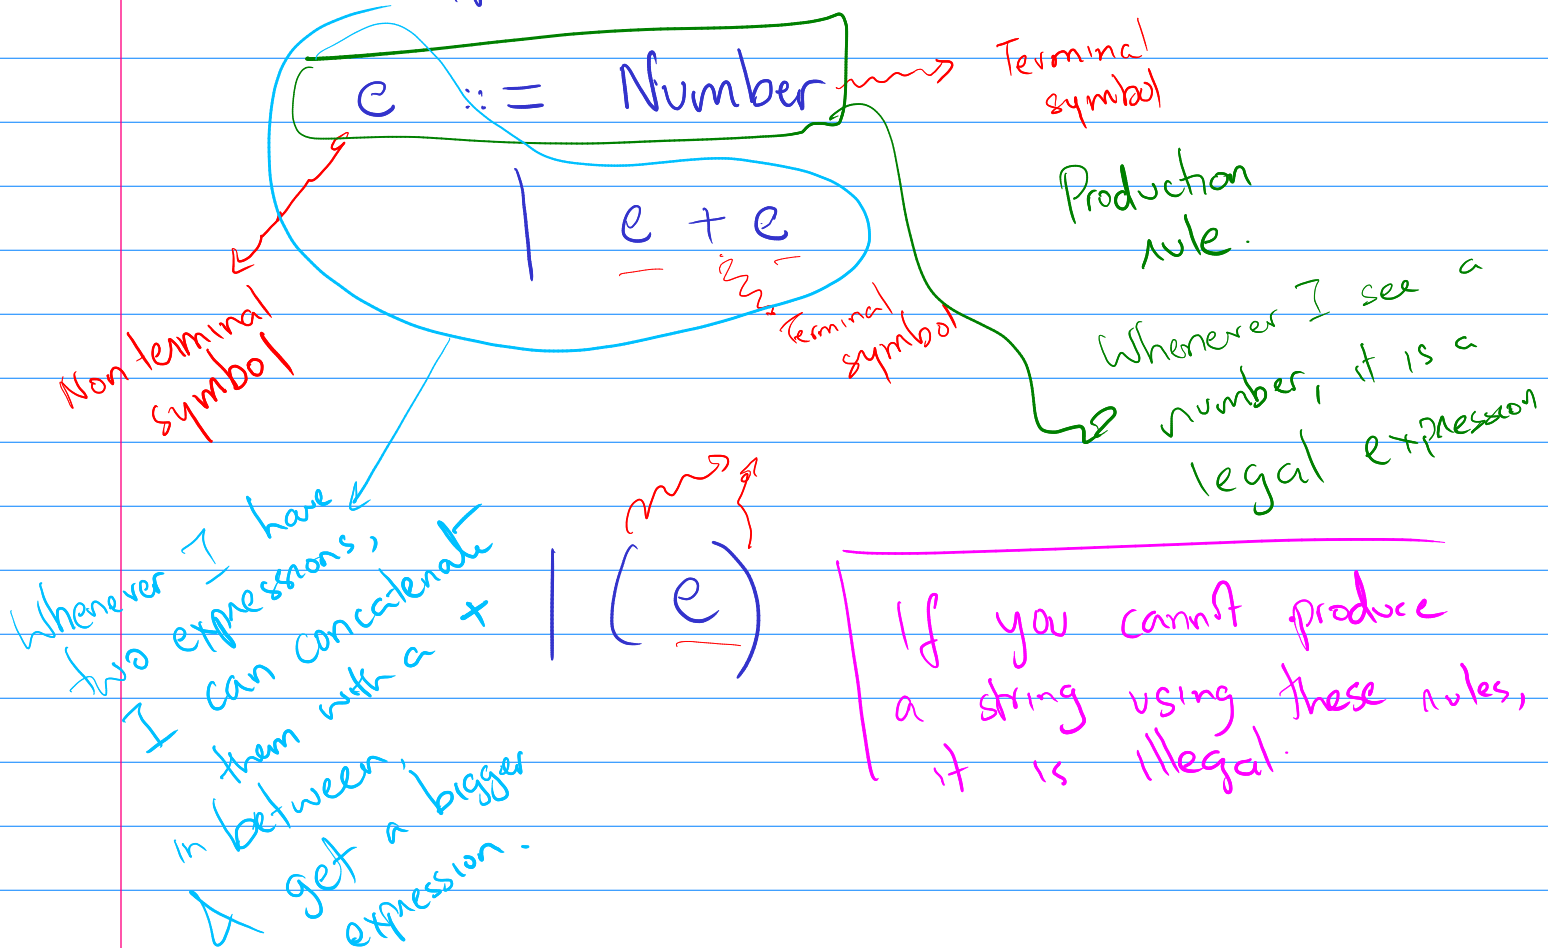 e ::= Number
Terminal
symbol
Production
rule.
| e + e
Terminal
symbol
Non terminal
symbol
Whenever I see a
number, it is a
legal expression
| (e)
Whenever I have
two expressions,
I can concatenate
them with a +
in between,
get a bigger
expression.
If you cannot produce
a string using these rules,
it is illegal.